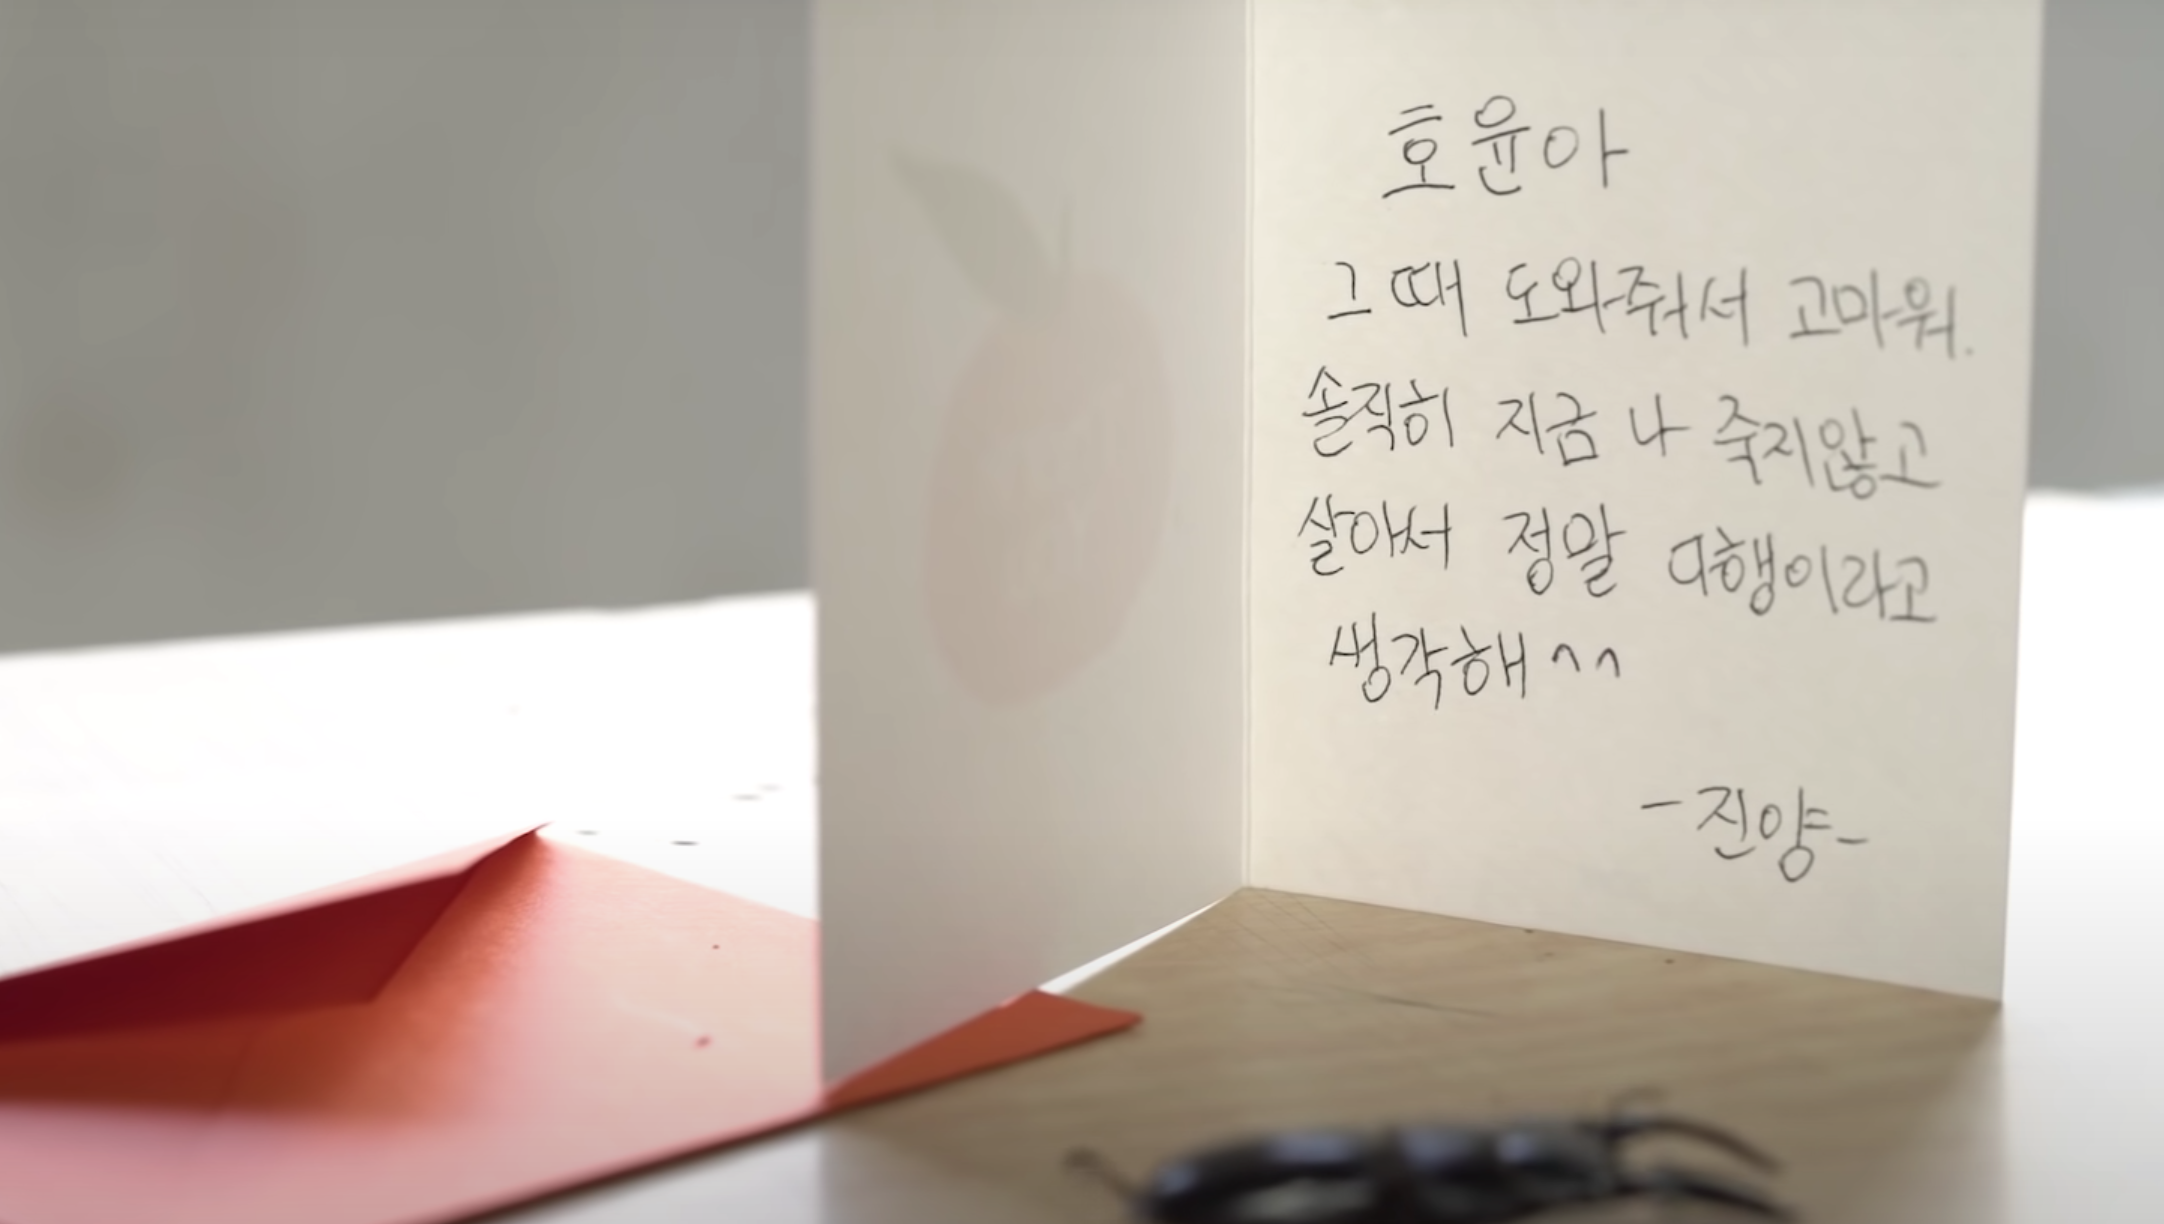 호윤아
그때 도와줘서 고마워.
솔직히 지금 나 죽지않고
살아서 정말 다행이라고
생각해^^
-진양-